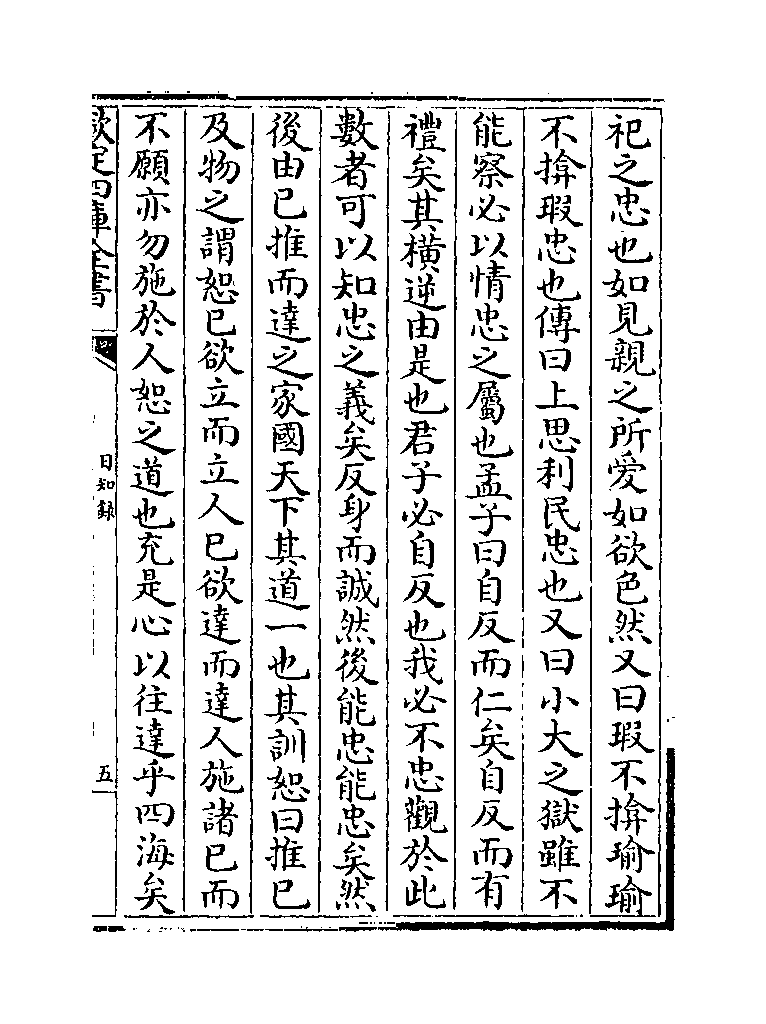 祀之忠也如見親之所愛如欲色然又曰瑕不揜瑜瑜
不揜瑕忠也傳曰上思利民忠也又曰小大之獄雖不
能察必以情忠之屬也孟子曰自反而仁矣自反而有
禮矣其橫逆由是也君子必自反也我必不忠觀於此
數者可以知忠之義矣反身而誠然後能忠能忠矣然
後由已推而達之家國天下其道一也其訓恕曰推已
及物之謂恕已欲立而立人已欲達而達人施諸已而
不願亦勿施於人恕之道也充是心以往達乎四海矣
欽定四庫全書
日知錄
五